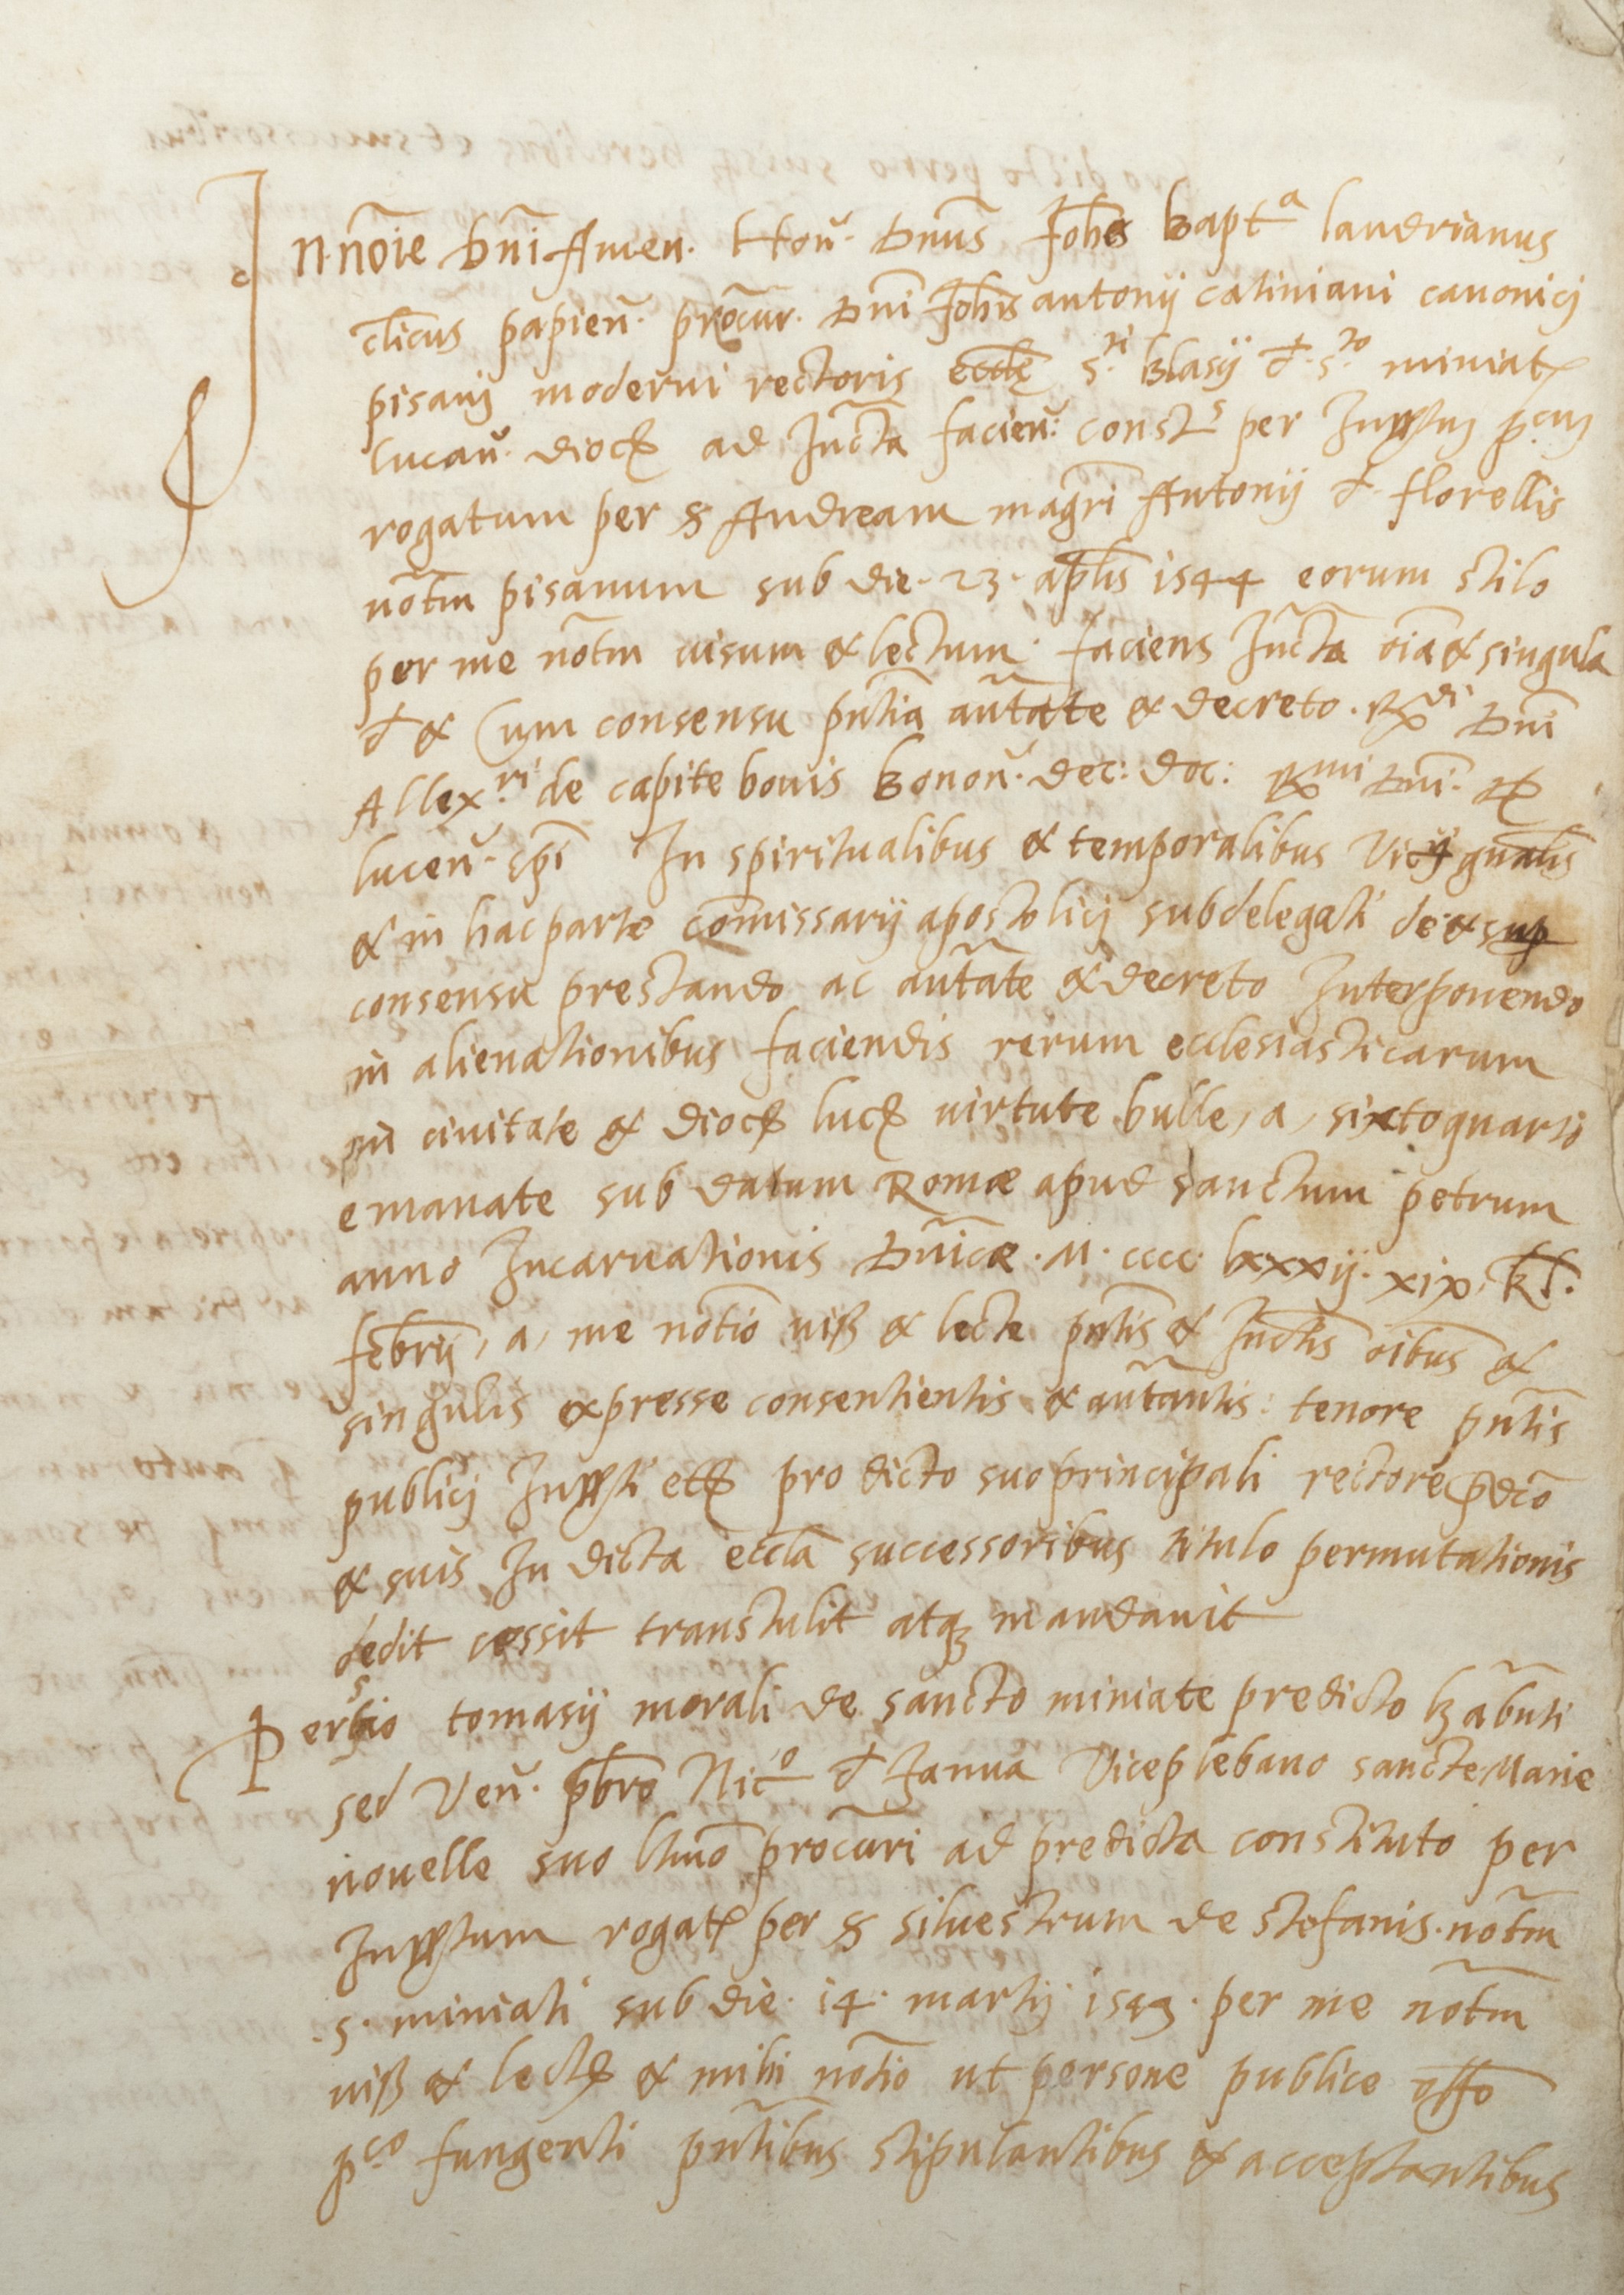 In nōie Dnī Amen. Honͬ. Dnūs Johēs Baptᵃ landrianus
clīcus papieñ. procur̄. Dnī Johis antonij catiniani canonicj
pisanj moderni rectoris eccłę sᵗⁱ Blasij d. sᵗᵒ miniatę
lucañ. dioc̨ ad Infr̄cta facieñ: constˢ per Inst̄m p.cuȝ
rogatum per S Andream magr̄i Antonij d. florellis
not̄m pisanum sub die. 23. aplīs 1544 eorum stilo
per me not̄m uisum & lectum. faciens Infr̄cta oīa & singula
d & Cum consensu pn̄tia auc̄tate & decreto. Rᵈⁱ Dnī
Allexʳⁱ de capite bouis Bonoñ. dec: doc: Rᵐⁱ Dnī. D.
luceñ. ep̄i In spiritualibus & temporalibus Vicarij gn̄alis
& in hac parte com̄issarij apostolicj subdelegati de & sup
consensu prestando ac auc̄tate & decreto Interponendo
in alienationibus faciendis rerum ecclesiasticarum
in ciuitate & dioc̨ luc̨ uirtute bulle, a, sixto quarto
emanate sub datum Romæ apud sanctum petrum
anno Incarnationis Dn̄icæ. M. cccc. lxxxij. xix, kl̄.
febrīj, a, me not̄io uiß & lecte pn̄tis & Infr̄ctis oībus &
singulis expresse consentientis & auc̄tantis: tenore pn̄tis
publicj Inst̄i etc̨ pro dicto suo principali rectore p̄dcō
& suis In dicta eccl̄a successoribus titulo permutationis
dedit cessit transtulit atqȝ mandauit
Persio tomasij morali de sancto miniate predicto hab̄nti
sed Veñ. pb̄ro Nicᵒ d Janua Viceplebano sancte Marie
nouelle suo ltīmo procūri ad predicta constituto per
Inst̄um rogatę per S siluestrum de stefanis. not̄m
.s. miniati sub die. 14. martij 1543. per me not̄m
uiß & lectę & mihi not̄io ut persone publice offo
p.ᶜᵒ fungenti pn̄tibus stipulantibus & acceptantibus